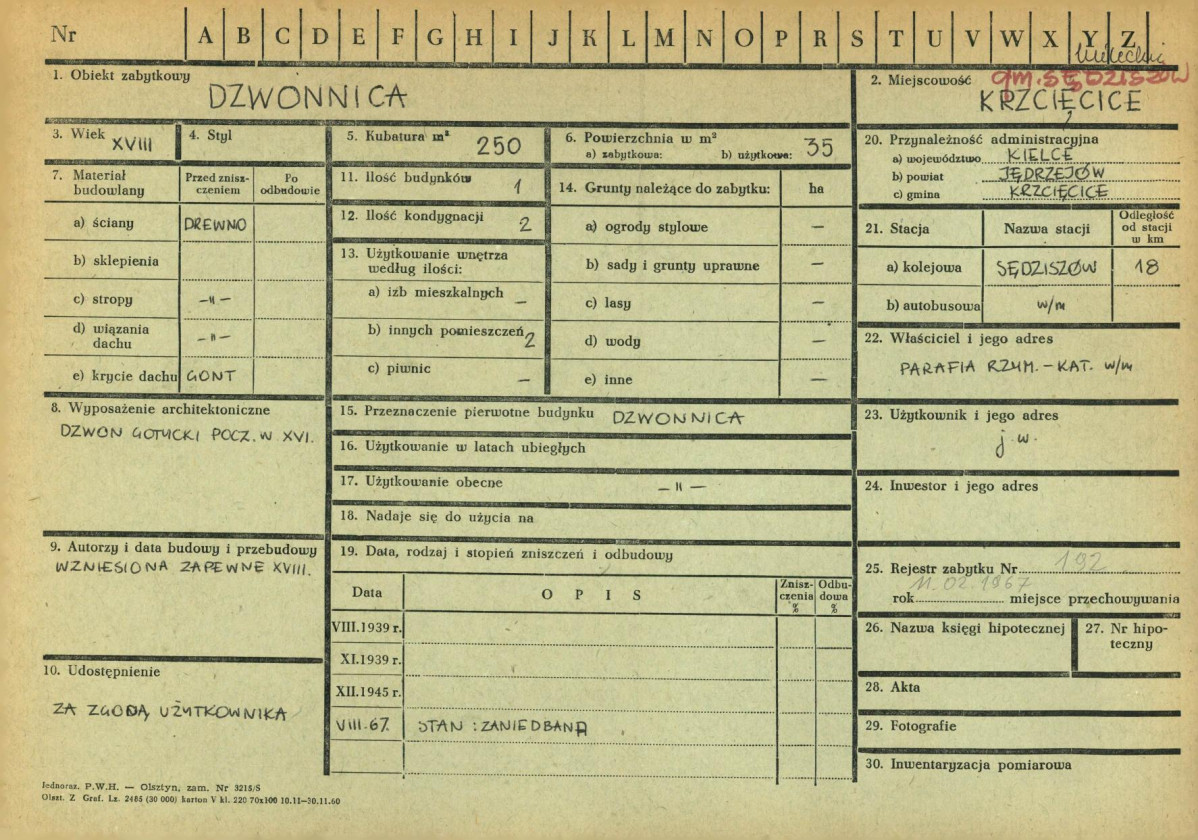 Nr A B C D E F G H I J K L M N O P R S T U V W X Y Z
1. Obiekt zabytkowy
DZWONNICA
2. Miejscowość gm. SĘDZISZÓW
KRZCIĘCICE
3. Wiek XVIII
4. Styl
5. Kubatura m³ 250
6. Powierzchnia w m²
a) zabytkowa: b) użytkowa: 35
7. Materiał budowlany
Przed zniszczeniem
Po odbudowie
a) ściany DREWNO
b) sklepienia
c) stropy —"—
d) wiązania dachu —"—
e) krycie dachu GONT
8. Wyposażenie architektoniczne
DZWON GOTYCKI POCZ. W XVI.
9. Autorzy i data budowy i przebudowy
WZNIESIONA ZAPEWNE XVIII.
10. Udostępnienie
ZA ZGODĄ UŻYTKOWNIKA
11. Ilość budynków 1
12. Ilość kondygnacji 2
13. Użytkowanie wnętrza
według ilości:
a) izb mieszkalnych —
b) innych pomieszczeń 2
c) piwnic —
14. Grunty należące do zabytku: ha
a) ogrody stylowe —
b) sady i grunty uprawne —
c) lasy —
d) wody —
e) inne —
15. Przeznaczenie pierwotne budynku DZWONNICA
16. Użytkowanie w latach ubiegłych
17. Użytkowanie obecne —"—
18. Nadaje się do użycia na
19. Data, rodzaj i stopień zniszczeń i odbudowy
Data O P I S Zniszczenia % Odbudowa %
VIII.1939 r.
XI.1939 r.
XII.1945 r.
VIII-67. STAN : ZANIEDBANA
20. Przynależność administracyjna
a) województwo KIELCE
b) powiat JĘDRZEJÓW
c) gmina KRZCIĘCICE
21. Stacja Nazwa stacji Odległość od stacji w km
a) kolejowa SĘDZISZÓW 18
b) autobusowa w/m
22. Właściciel i jego adres
PARAFIA RZYM.-KAT. w/m
23. Użytkownik i jego adres
j.w.
24. Inwestor i jego adres
25. Rejestr zabytku Nr 192
rok 11.02.1967 miejsce przechowywania
26. Nazwa księgi hipotecznej
27. Nr hipoteczny
28. Akta
29. Fotografie
30. Inwentaryzacja pomiarowa
Jednoraz. P.W.H. — Olsztyn, zam. Nr 3215/S
Olszt. Z Graf. Lz. 2465 (30 000) karton V kl. 220 70x100 10.11—30.11.60